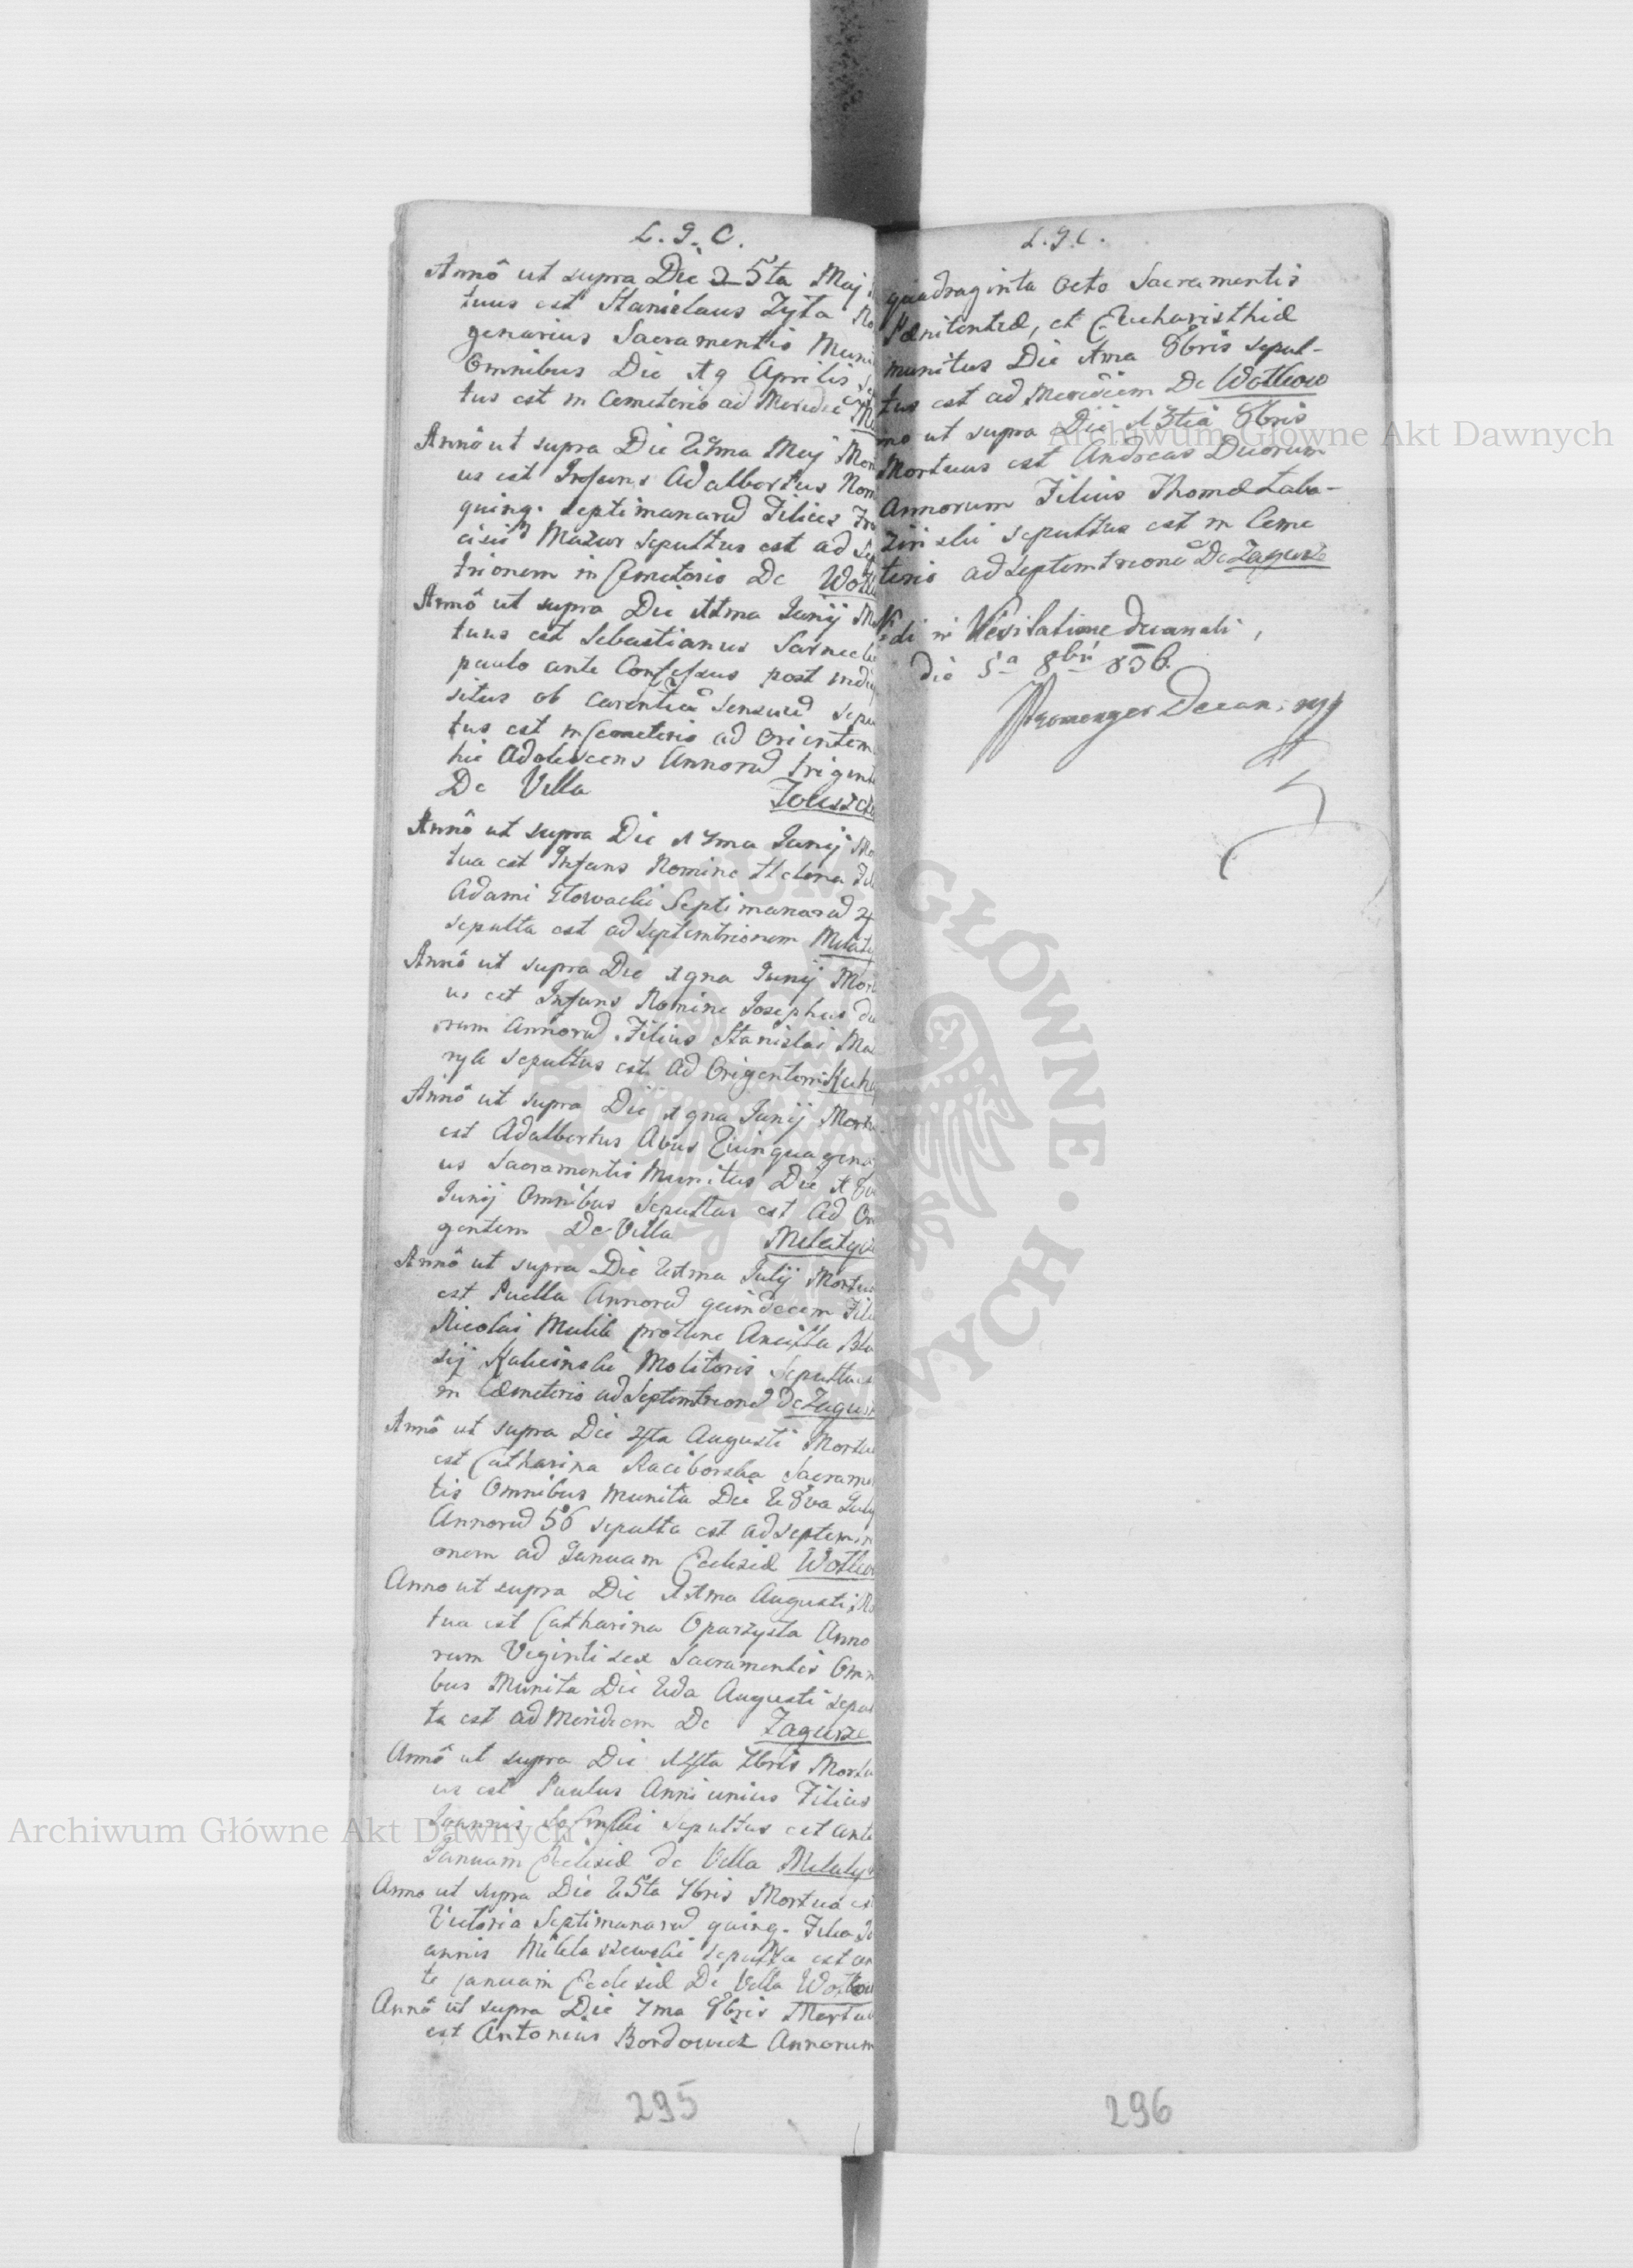 L. J. C.
Annô ut supra Die 25ta Maj
tuus est Stanislaus Zyta No
genarius Sacramentis Muni
Omnibus Die 19 Aprilis Se
tus est in Cemeterio ad Meridie
Annô ut supra Die 27ma Maj Mor
us est Infans Adalbertus Nom
quinq. septimanarum Filius Fra
cisci Mazur sepultus est ad Sep
trionem in Cemeterio De Wołk
Annô ut supra Die 11ma Junij Mo
tuus est Sebastianus Sarneck
paulo ante Confessus post
situs ob Carentia Sensuum sepu
tus est in Cemeterio ad Orientem
hic Adolescens Annorum trigint
De Villa
Annô ut supra Die 17ma Junij Mo
tua est Infans Nomine Helena Fil
Adami Głowacki Septimanarum 4
sepulta est ad septemtrionem Milaty
Annô ut supra Die 19na Junij Mor
us est Infans Nomine Josephus du
rum Annorum Filius Stanislai Ma
ryk sepultus est ad Origentem Kuha
Annô ut supra Die 19na Junij Mortu
est Adalbertus Abus Quinquagena
us Sacramentis Munitus Die 18va
Junij Omnibus sepultus est Ad Ori
gentem De Villa Milatyn
Annô ut supra Die 21ma Julij Mortu
est Puella Annorum quindecem Filia
Nicolai Mulik protunc Ancilla Bla
sij Kaliciński Molitoris Sepulta
in Cæmeterio ad Septemtrionem De Zagurz
Annô ut supra Die 4ta Augusti Mortu
est Catharina Raciborska Sacrame
tis Omnibus munita Die 28va July
Annorum 56 sepulta est ad septemtri
onem ad Januam Ecclesiæ Wołkow
Anno ut supra Die 11ma Augusti Mo
tua est Catharina Oparzysta Anno
rum Viginti sex Sacramentis Omni
bus Munita Die 2da Augusti sepul
ta est ad Meridiem De Zagurze
Annô ut supra Die 14ta 7bris Mortu
us est Paulus Anni unius Filius
Joannis sepultus est ante
Januam Ecclesiæ de Villa Milaty
Anno ut supra Die 25ta 7bris Mortua est
Victoria Septimanarum quinq. Filia Jo
annis Mikłaszewski sepulta est an
te januam Ecclesiæ De Villa Wołkow
Annô ut supra Die 7ma 8bris Mortu
est Antonius Bordowicz Annorum
295
L. J. C.
quadraginta Octo Sacramentis
Pænitentiæ, et Eucharisthiæ
munitus Die 1ma 8bris sepul-
tus est ad Meridiem De Wołkow
no ut supra Die 13tia 8bris
Mortuus est Andreas Duorum
Annorum Filius Thomæ Łaba-
ziński sepultus est in Ceme
terio ad septemtrione De Zagurze
Vidi in Visitatione Decanali,
die 5a 8bris 836.
Decan. mp
296
Archiwum Główne Akt Dawnych
Archiwum Główne Akt Dawnych